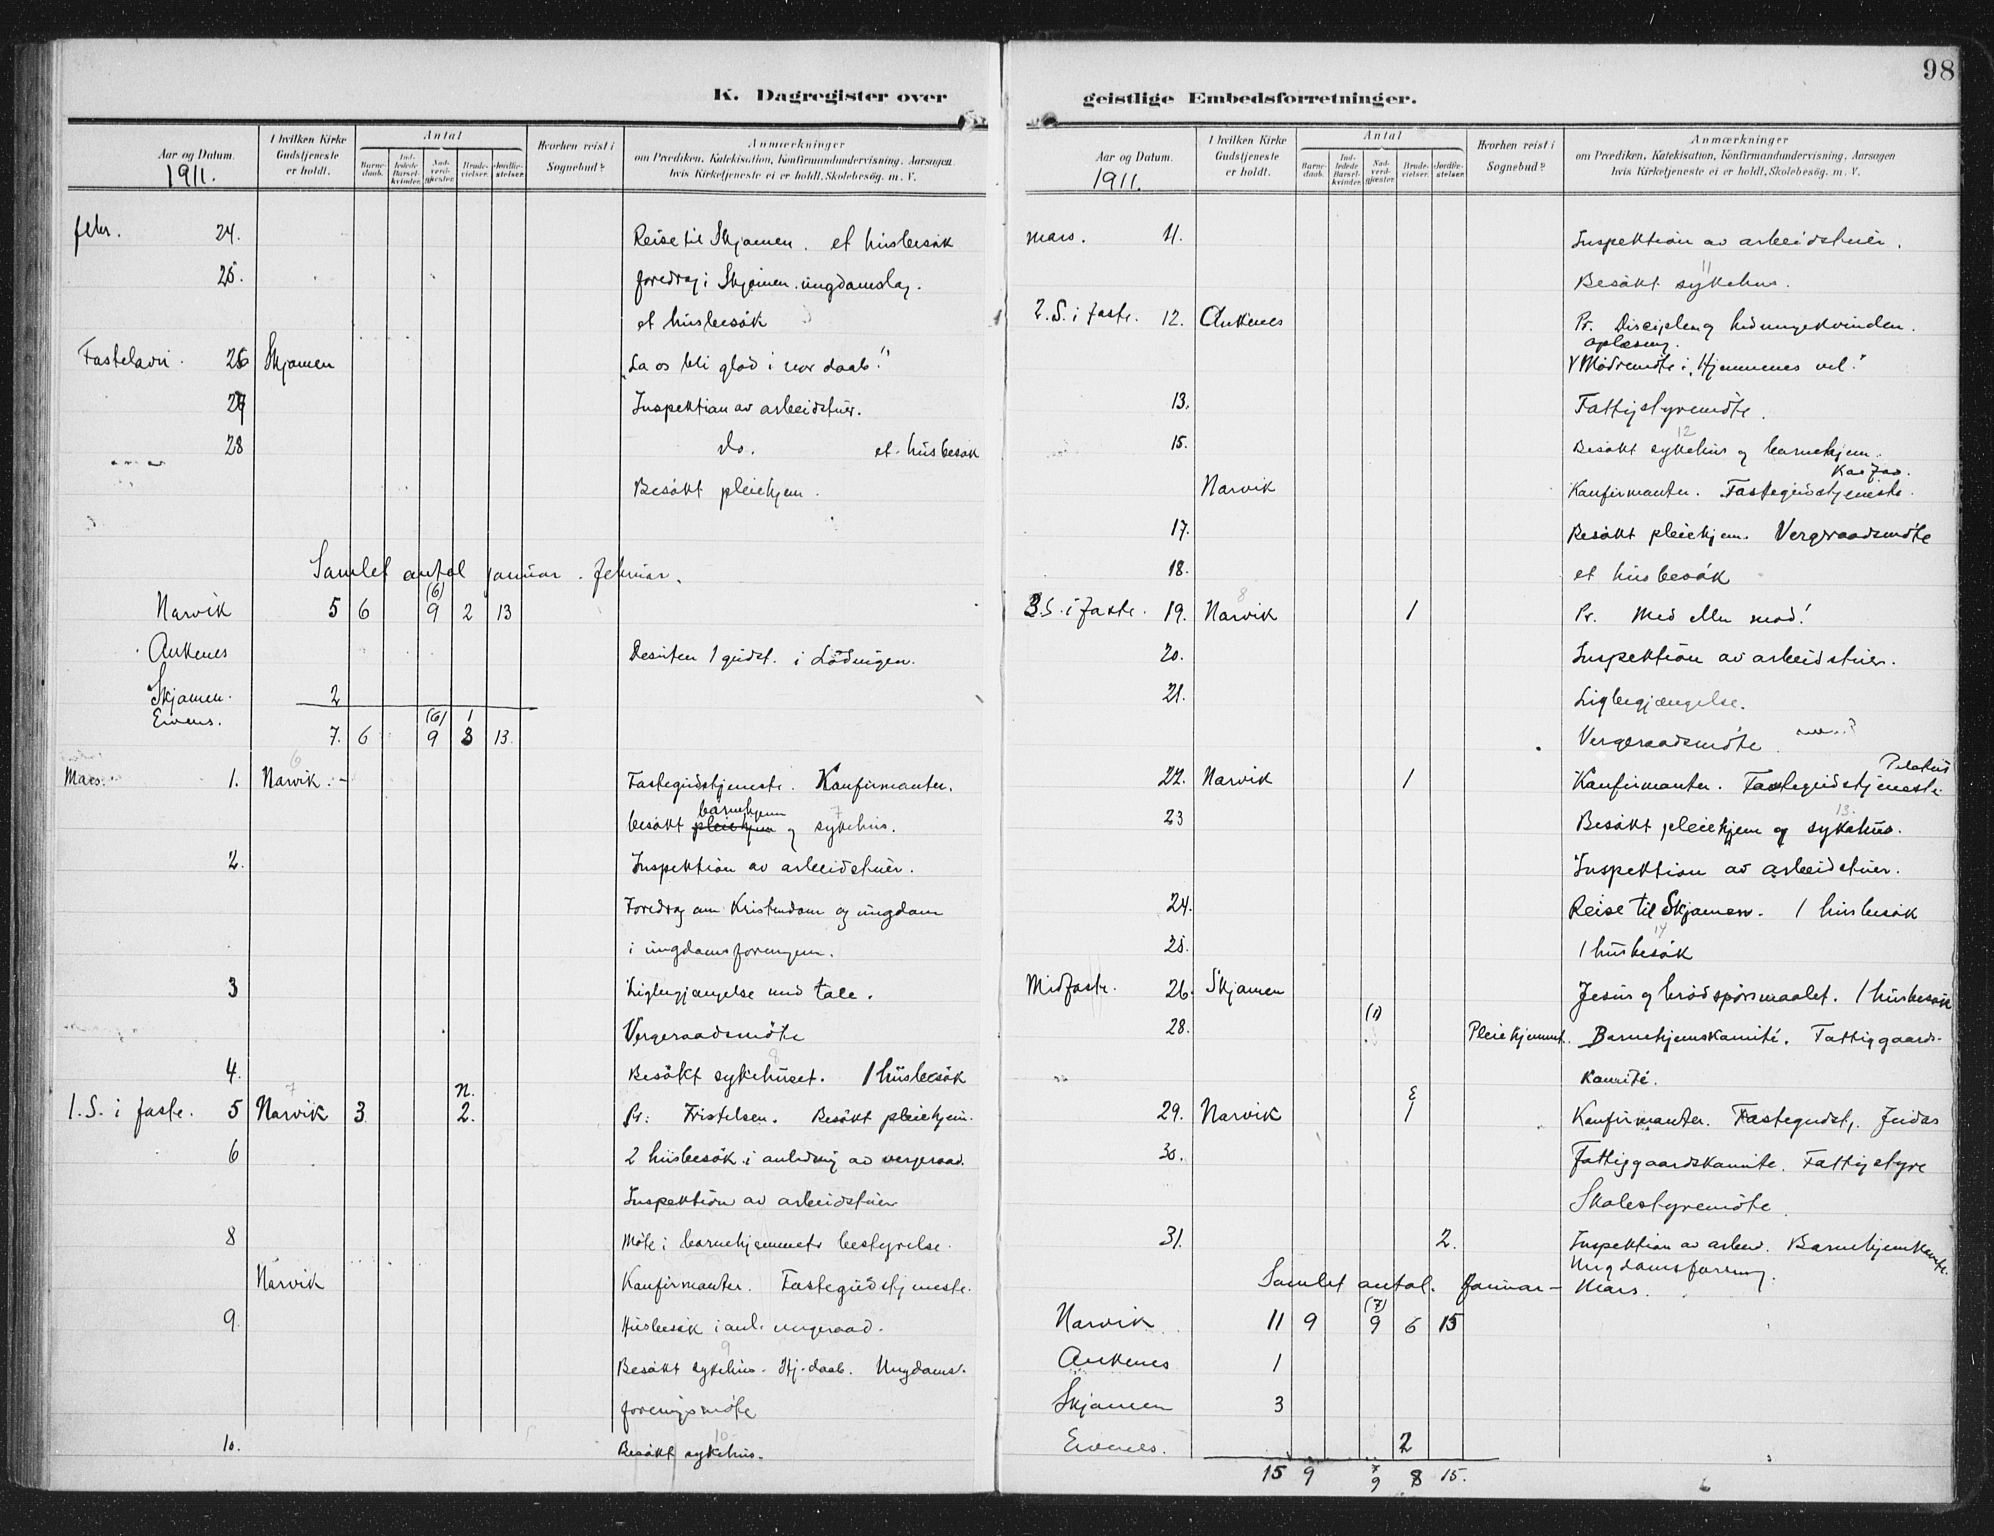 K. Dagregister over
Aar og Datum.
1911.
I hvilken Kirke Gudstjeneste er holdt.
Antal
Barne-daab.
Ind-ledede Barsel-kvinder.
Nad-verd-gjæster.
Brude-vielser.
Jordfæ-stelser.
Hvorhen reist i Sognebud?
Anmærkninger
om Prædiken, Katekisation, Konfirmandundervisning, Aarsagen
hvis Kirketjeneste ei er holdt, Skolebesøg. m. V.
febr. 24. Reise til Skjomen. et husbesøk
25. foredrag i Skjomen ungdomslag.
et husbesøk
Fastelavn. 26 Skjomen „La os bli glad i vor daab."
27 Inspektion av arbeidstuer.
28 do. et husbesøk
Besøkt pleiehjem.
Samlet antal januar. februar.
(6)
Narvik 5 6 9 2 13
Ankenes Desuten 1 gudst. i Lödingen.
Skjomen. 2
Evenes. (6) 1
7. 6 9 3 13.
6
Mars. 1. Narvik. - Fastegudstjeneste. Konfirmanter.
barnehjem 7
besøkt pleiehjem og sykehus.
2. Inspektion av arbeidstuer.
Foredrag om Kristendom og ungdom
i ungdomsforeningen.
3 Ligbegjængelse med tale.
Vergeraadsmöte
4. Besøkt sykehuset. 1 husbesøk
7 n.
1. S. i faste. 5 Narvik 3 2. Pr: Fristelsen. Besøkt pleiehjem.
6 2 husbesøk i anledning av vergeraad.
Inspektion av arbeidstuer
8 Möte i barnehjemmets bestyrelse.
Narvik Konfirmanter. Fastegudstjeneste.
9. Husbesøk i anl. vergeraad.
9
Besøkt sykehus. Hj.daab. Ungdoms-
foreningsmöte
10
10. Besøkt sykehus.
98
geistlige Embedsforretninger.
Aar og Datum.
1911.
I hvilken Kirke Gudstjeneste er holdt.
Antal
Barne-daab.
Ind-ledede Barsel-kvinder.
Nad-verd-gjæster.
Brude-vielser.
Jordfæ-stelser.
Hvorhen reist i Sognebud?
Anmærkninger
om Prædiken, Katekisation, Konfirmandundervisning, Aarsagen
hvis Kirketjeneste ei er holdt, Skolebesøg. m. V.
mars. 11. Inspektion av arbeidstuer.
11
Besøkt sykehus.
2. S. i faste. 12. Ankenes Pr. Disciplen og hedningekvinden.
oplæsning.
Mödremöte i „Hjemmenes vel."
13. Fattigstyremöte.
12
15. Besøkt sykehus og barnehjem.
Kaifas.
Narvik Konfirmanter. Fastegudstjeneste.
17. Besøkt pleiehjem. Vergeraadsmöte
18. et husbesøk
8
3. S. i faste. 19. Narvik 1 Pr. Med eller mod!
20. Inspektion av arbeidstuer.
21. Ligbegjængelse.
Vergeraadsmöte.
Pilatus
22. Narvik 1 Konfirmanter. Fastegudstjeneste
13.
23 Besøkt pleiehjem og sykehus.
Inspektion av arbeidstuer.
24. Reise til Skjomen. 1 husbesøk
14
25. 1 husbesøk
Midfaste. 26. Skjomen Jesus og brødspørsmaalet. 1 husbesøk
(1)
28. Pleiehjemmet. Barnehjemskomité. Fattiggaards-
Komité.
E
29. Narvik 1 Konfirmanter. Fastegudst, Judas
30. Fattiggaardskomite. Fattigstyre
Skolestyremöte.
31. 2. Inspektion av arbeid. Barnehjemkomite.
Ungdomsforening.
Samlet antal. Januar - Mars.
(7)
Narvik 11 9 9 6 15
Ankenes 1
Skjomen 3
Evenes. 2
15 9 7 9 8 15.